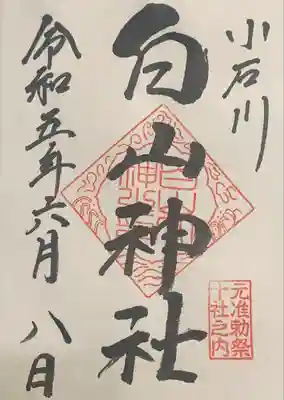 小石川
白山神社
令和五年六月八日
元准勅祭
十社之内
白山
神社